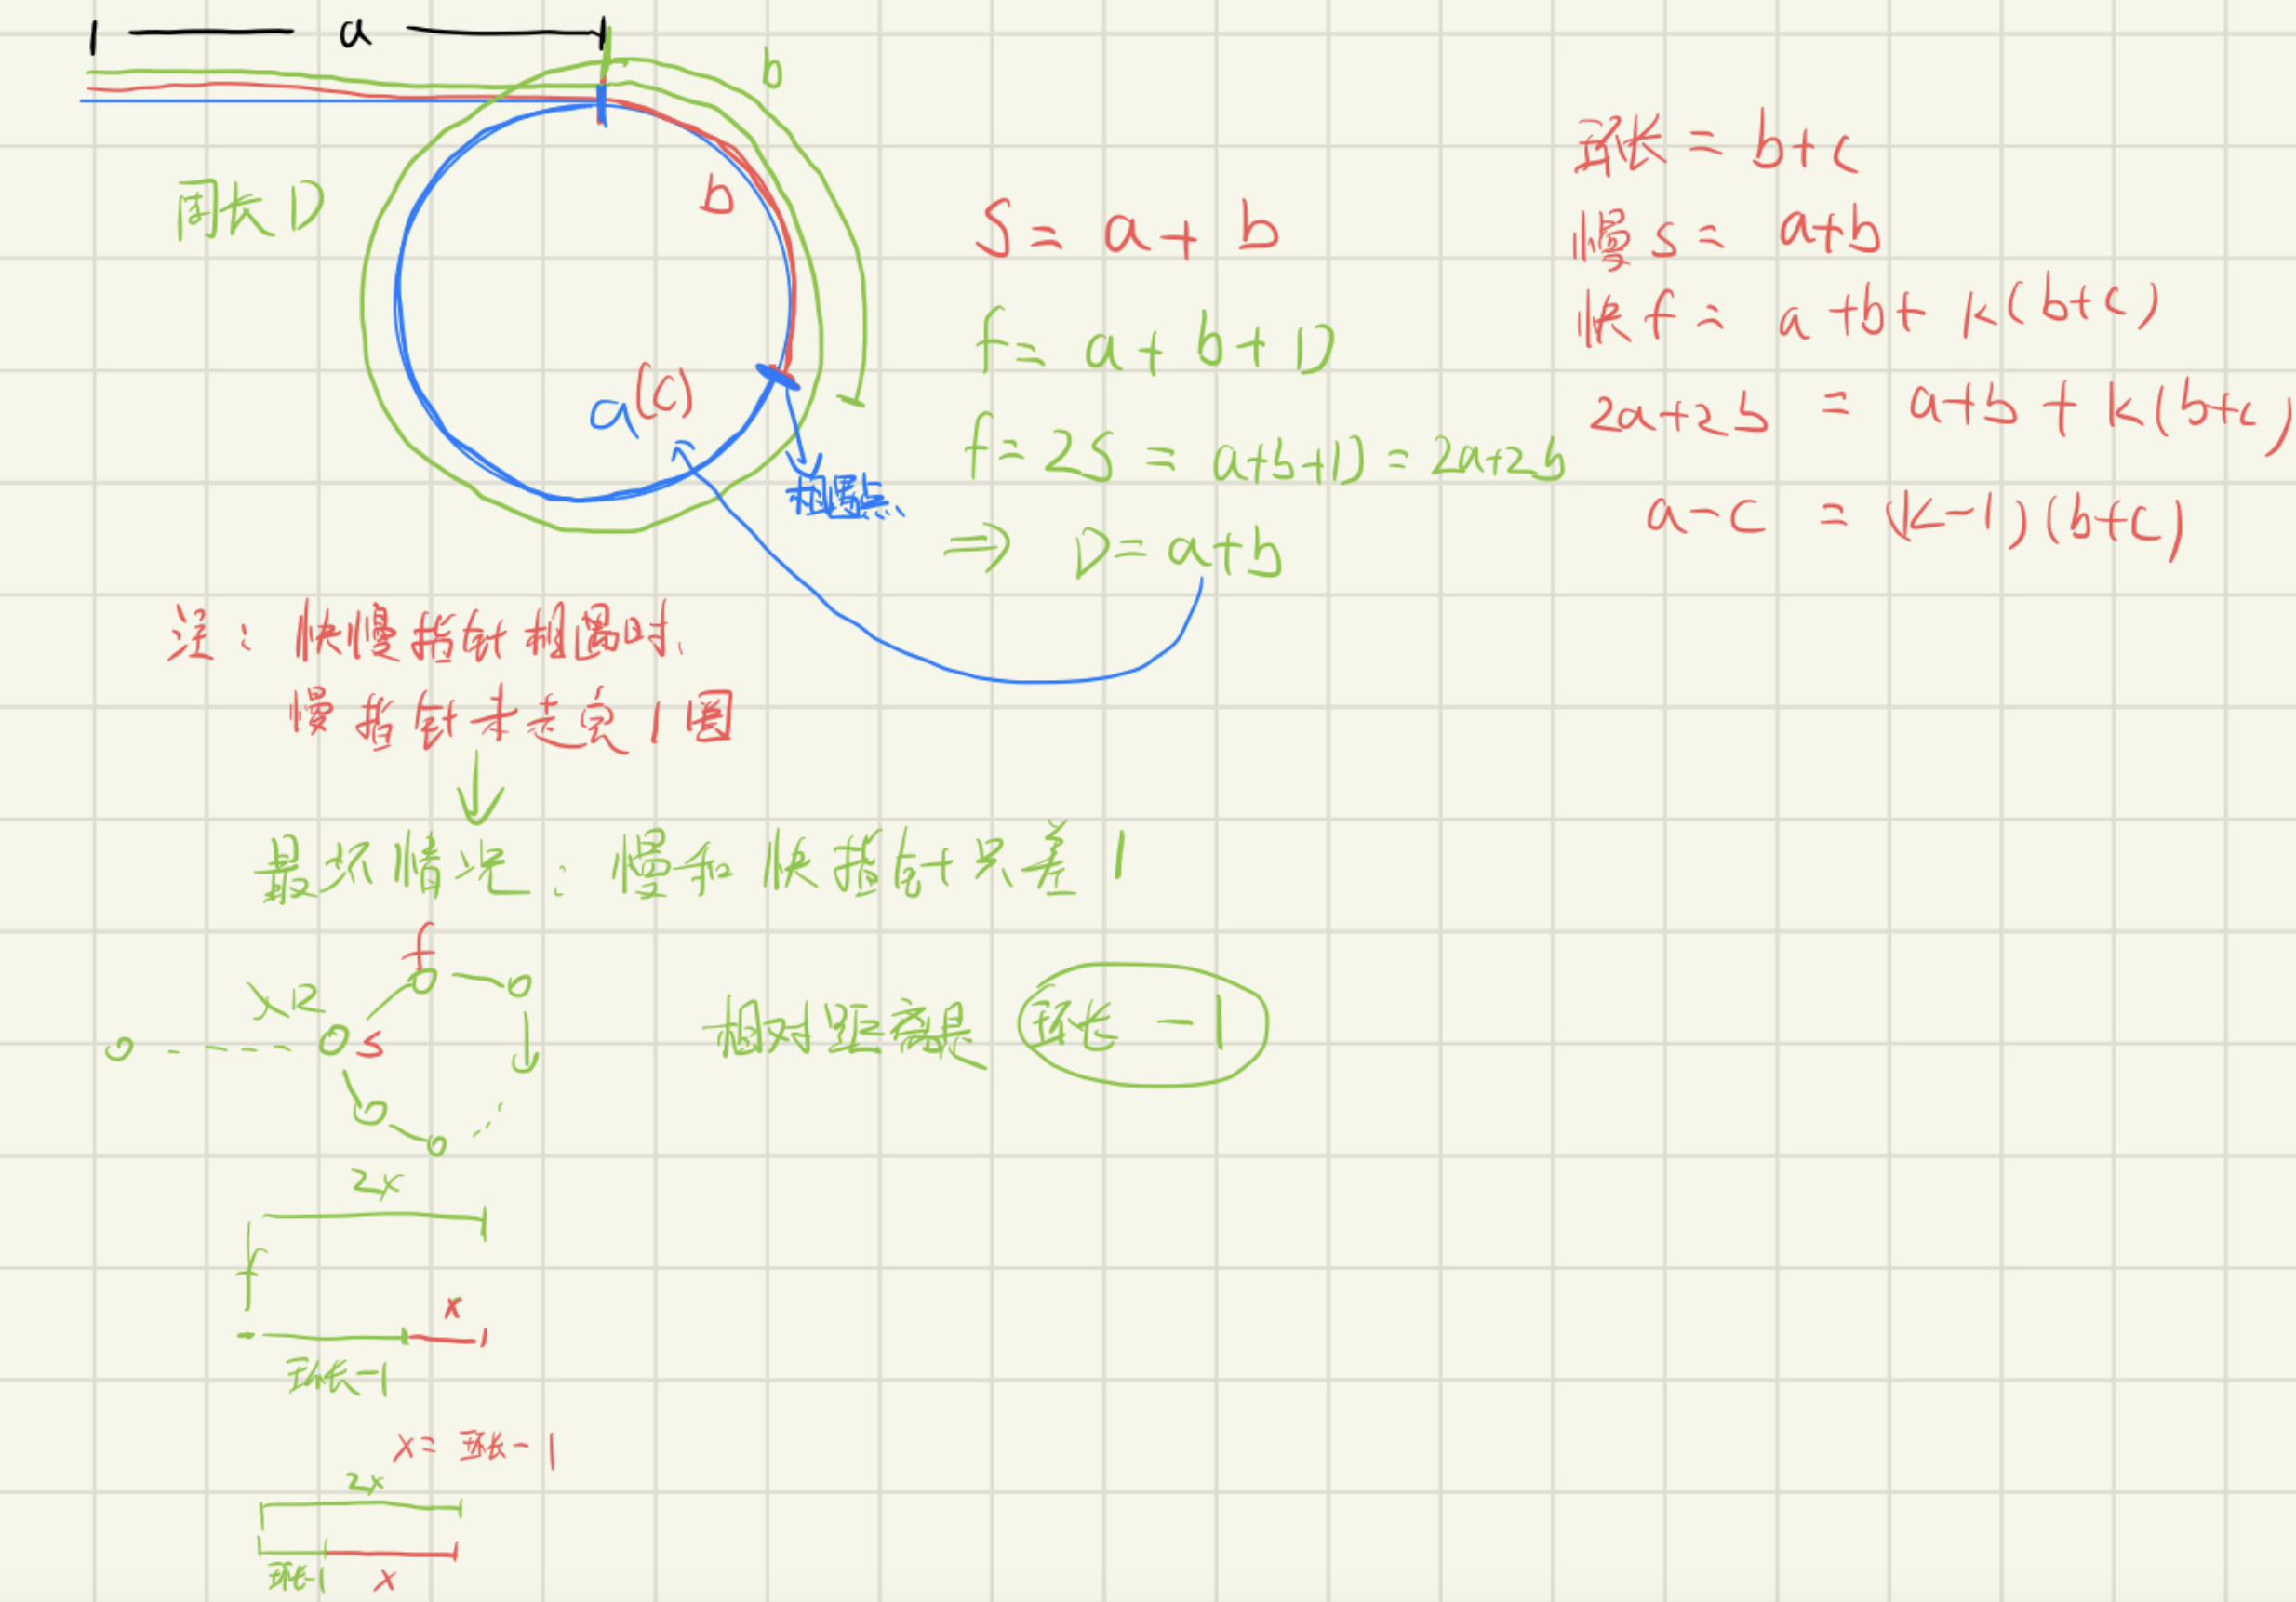 a
b
周长 D
b
a (c)
相遇点
S = a + b
f = a + b + D
f = 2S = a+b+D = 2a+2b
⇒ D = a+b
环长 = b+c
慢 s = a+b
快 f = a+b+k(b+c)
2a+2b = a+b+k(b+c)
a-c = (k-1)(b+c)
注: 快慢指针相遇时、
慢指针未走完1圈
最坏情况: 慢和快指针只差1
f
s
相对距离是 环长-1
2x
f
x
环长-1
x = 环长-1
2x
环长-1 x